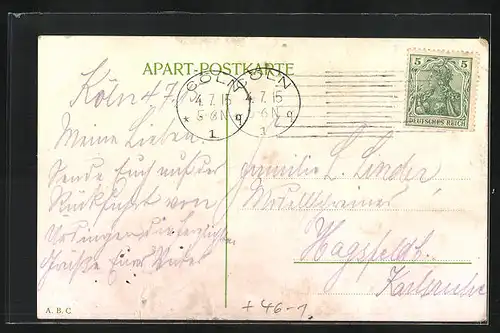 APART-POSTKARTE
CÖLN
4.7.15
5-6N
* 1 q
CÖLN
4.7.15
5-6N
1 q
5 5
DEUTSCHES REICH
Köln 4.7.15
Meine Lieben.
Sende Euch auf der
Rückfahrt von
die herzlichsten
Grüße Euer
Familie L. Linder
Hagsfeld b.
Karlsruhe
A. B. C.
+46-1